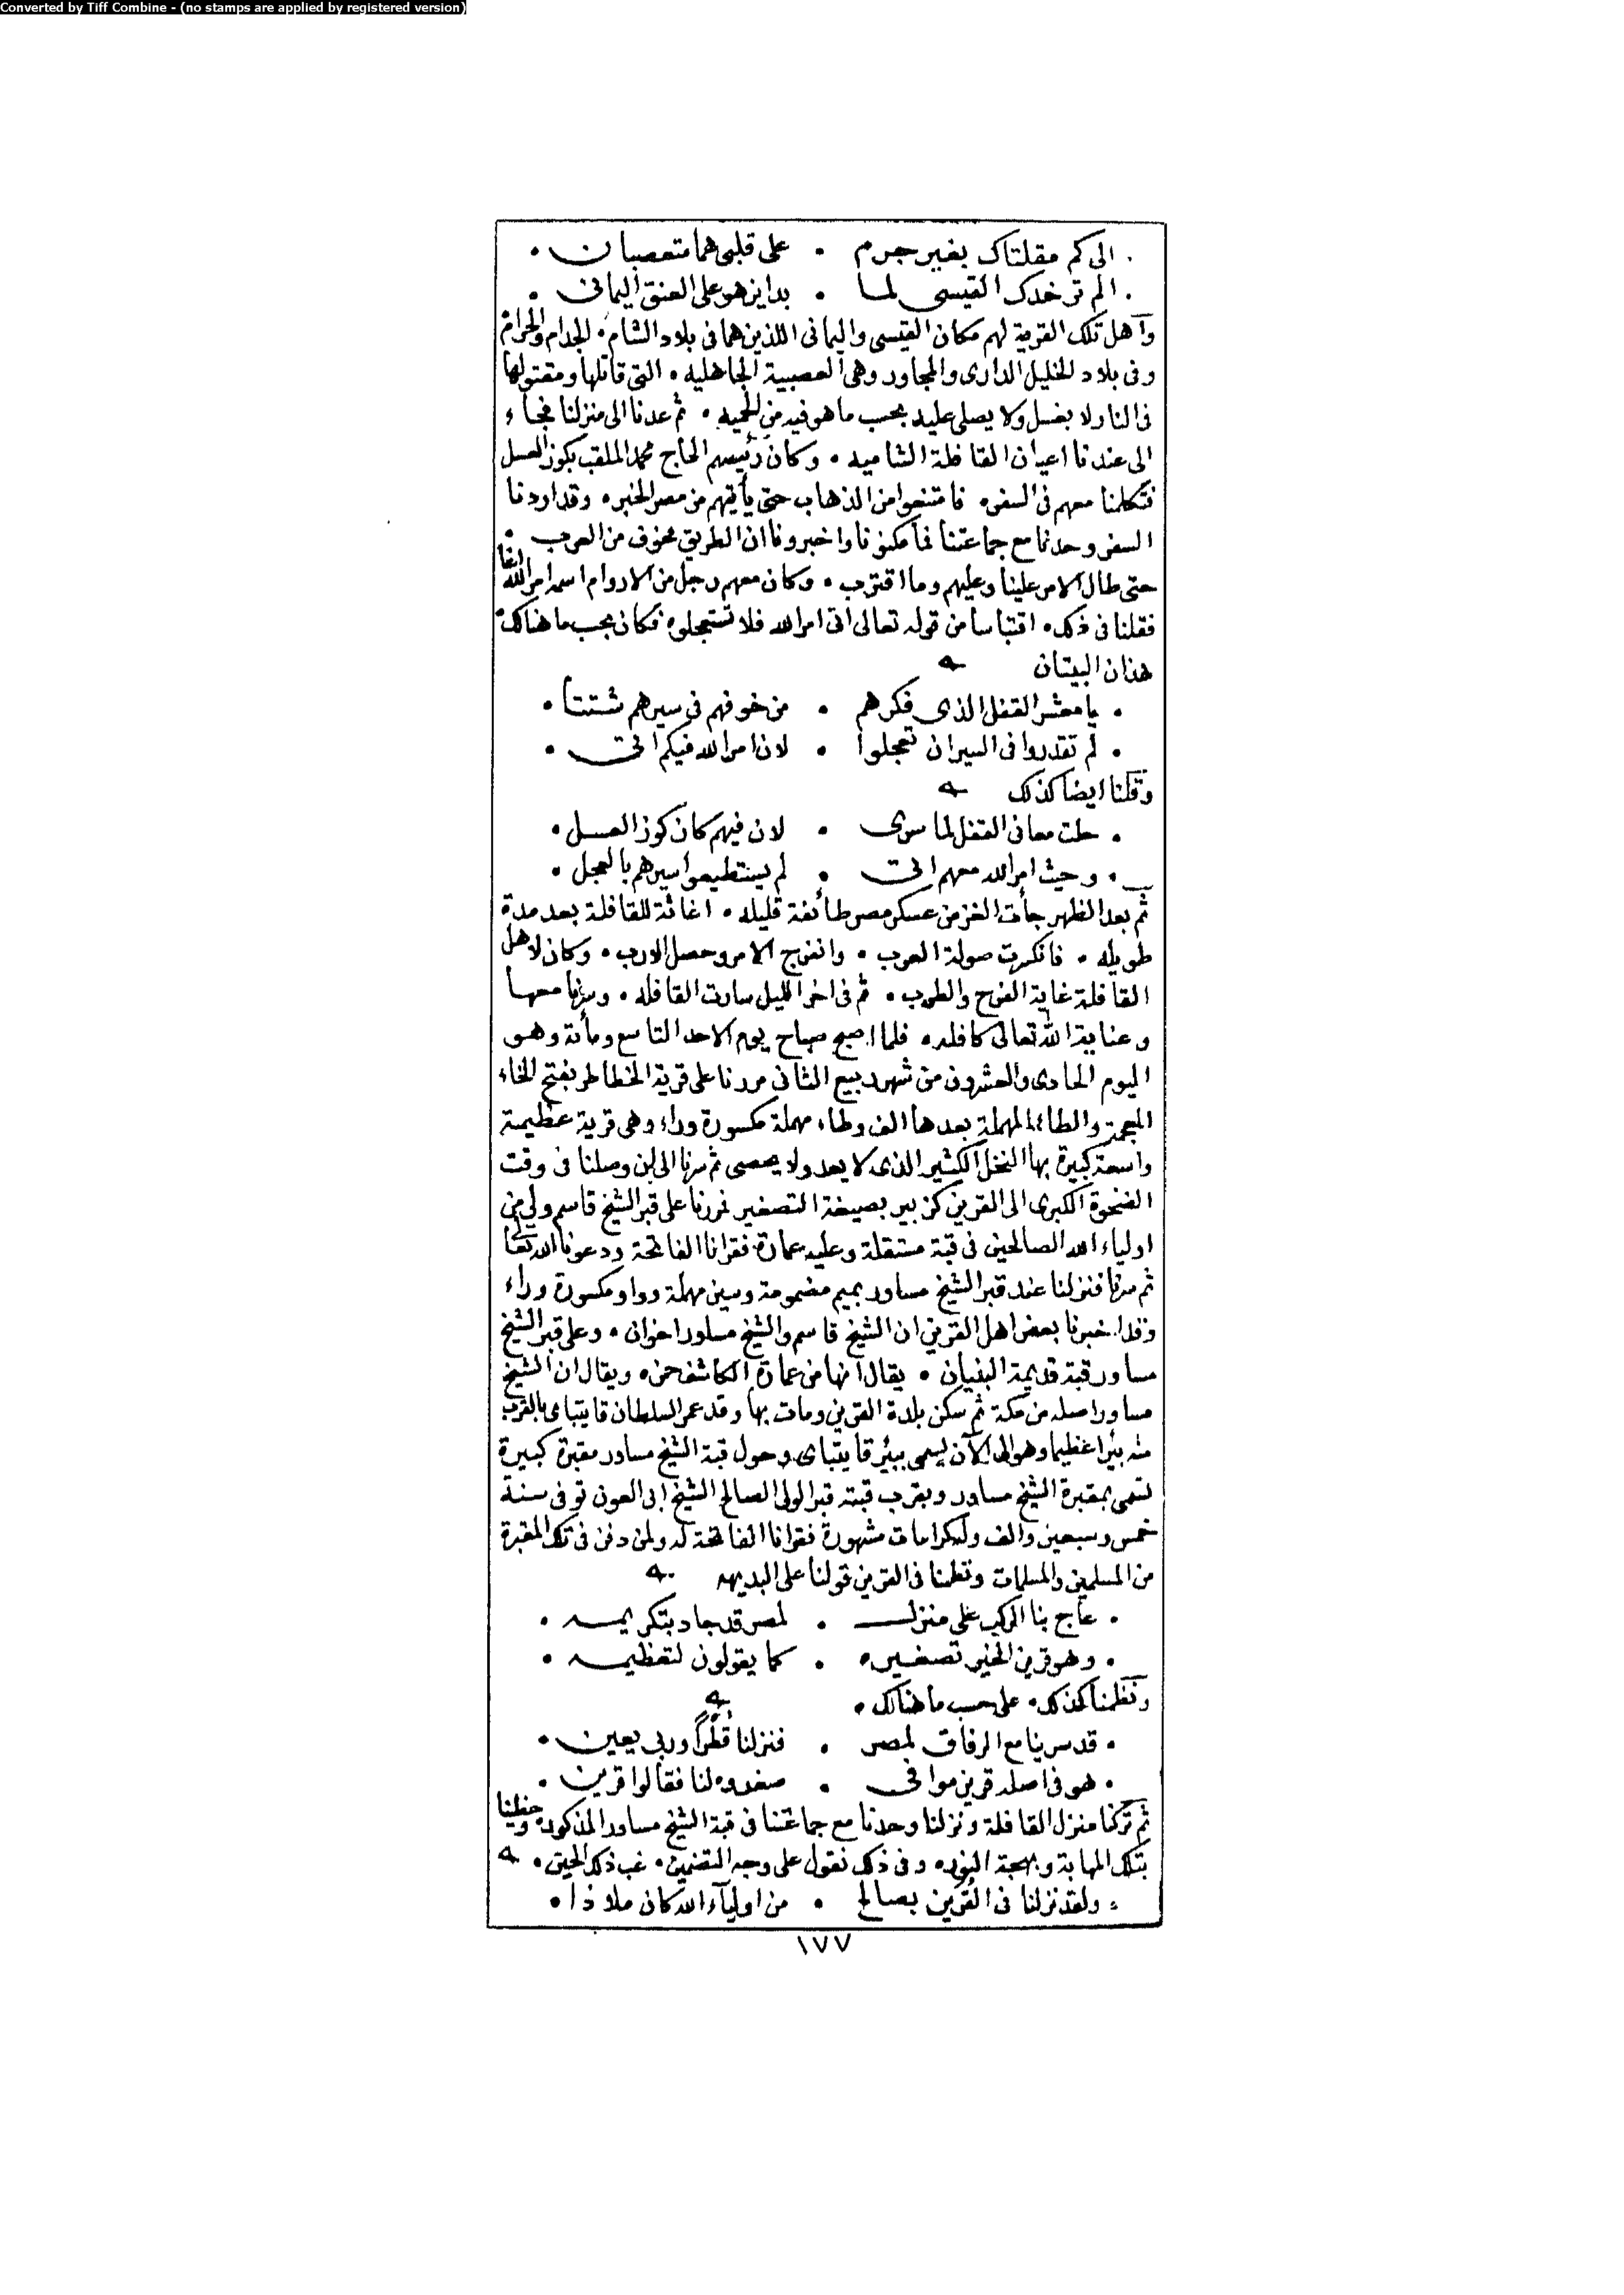 Converted by Tiff Combine - (no stamps are applied by registered version)
الى كم مقلتاك بغير جرم • على قلبى هما متعصبان •
الم تر خدك القيسى لما • بدا يزهو على العنق اليمانى •
وأهل تلك القرية لهم مكان القيسى واليمانى اللذين هما فى بلاد الشام • الجدام والحرام
وفى بلاد الخليل الدارى والمجاور وهى العصبية الجاهليه • التى قاتلها ومقتولها
فى النار ولا يغسل ولا يصلى عليه بحسب ما هو فيه من الحميه • ثم عدنا الى منزلنا فجاء
الى عندنا اعيان القافلة الشاميه • وكان رئيسهم الحاج محمد الملقب بكوز العسل
فتكلمنا معهم فى السفر • فامتنعوا من الذهاب حتى يأتيهم من مصر الخبر • وقد اردنا
السفر وحدنا مع جماعتنا فما مكنونا واخبرونا ان الطريق مخوف من العرب •
حتى طال الامر علينا وعليهم وما اقترب • وكان معهم رجل من الاروام اسمه امر الله اغا
فقلنا فى ذلك • اقتباسا من قوله تعالى اتى امر الله فلا تستعجلوه فكان بحسب ما هنالك •
هذان البيتان
• يا معشر القفل الذى فكرهم • من خوفهم فى سيرهم شتتا •
• لم تقدروا فى السير ان تعجلوا • لان امر الله فيكم اتى •
وقلنا ايضا كذلك
• حلت معانى القفل لما سرى • لان فيهم كان كوز العسل •
• وحيث امر الله معهم اتى • لم يستطيعوا سيرهم بالعجل •
ثم بعد الظهر جأت الغز من عسكر مصر طائفة قليله • اغاثة للقافلة بعد مدة
طويله • فانكسرت صولة العرب • وانفرج الامر وحصل الارب • وكان لاهل
القافلة غاية الفرح والطرب • ثم فى اخر الليل سارت القافله • وسرنا معها
وعناية الله تعالى كافله • فلما اصبح صباح يوم الاحد التاسع ومأنة وهو
اليوم الحادى والعشرون من شهر ربيع الثانى مررنا على قرية الخطاطر بفتح الخاء
المعجمة والطاء المهملة بعدها الف وطاء مهملة مكسورة وراء وهى قرية عظيمة
واسعة كبيرة بها النخل الكثير الذى لا يعد ولا يحصى ثم سرنا الى ان وصلنا فى وقت
الضحوة الكبرى الى القرين كزبير بصيغة التصغير فمررنا على قبر الشيخ قاسم ولى من
اولياء الله الصالحين فى قبة مستقلة وعليه عمارة فقرأنا الفاتحة ودعونا الله تعالى
ثم سرنا فنزلنا عند قبر الشيخ مساور بميم مضمومة وسين مهملة وواو مكسورة وراء
وقد اخبرنا بعض اهل القرين ان الشيخ قاسم والشيخ مساور اخوان • وعلى قبر الشيخ
مساور قبة قديمة البنيان • يقال انها من عمارة الكاشف حمزه ويقال ان الشيخ
مساور اصله من مكة ثم سكن بلدة القرين ومات بها وقد عمر السلطان قايتباى بالقرب
منه بئرا عظيما وهو الى الآن يسمى ببئر قايتباى وحول قبة الشيخ مساور مقبرة كبيرة
تسمى بمقبرة الشيخ مساور وبقرب قبته قبر الولى الصالح الشيخ ابى العون توفى سنة
خمس وسبعين والف وله كرامات مشهورة فقرأنا الفاتحة له ولمن دفن فى تلك المقبرة
من المسلمين والمسلمات ونظمنا فى القرين قولنا على البديهه
• عاج بنا الركب على منزل • لمصر قد جاد بتكريمه •
• وهو قرين الخير تصغيره • كما يقولون لتعظيمه •
ونظمنا كذلك • على حسب ما هنالك •
• قد سرينا مع الرفاق لمصر • فنزلنا قطرا وربى يعين •
• هو فى اصله قرين موافى • صغروه لنا فقالوا قرين •
ثم تركنا منزل القافلة ونزلنا وحدنا مع جماعتنا فى قبة الشيخ مساور المذكور • وحظينا
بتلك المهابة وبهجة النور • وفى ذلك نقول على وجه التضمين • غب ذلك الحين •
• ولقد نزلنا فى القُرين بصالح • من اوليآء الله كان ملاذا •
١٧٧